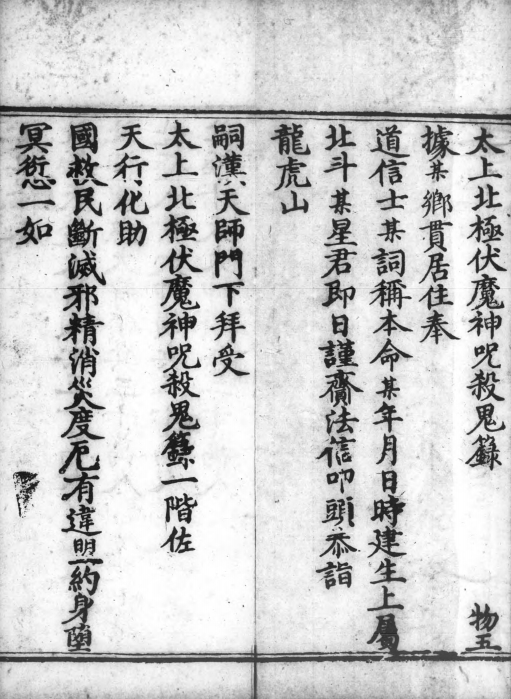 太上北極伏魔神呪殺鬼籙
物五
據某鄉貫居住奉
道信士某詞稱本命某年月日時建生上屬
北斗某星君即日謹齎法信叩頭恭詣
龍虎山
嗣漢天師門下拜受
太上北極伏魔神呪殺鬼籙一階佐
天行化助
國救民斷滅邪精消災度厄有違盟約身墮
冥愆一如